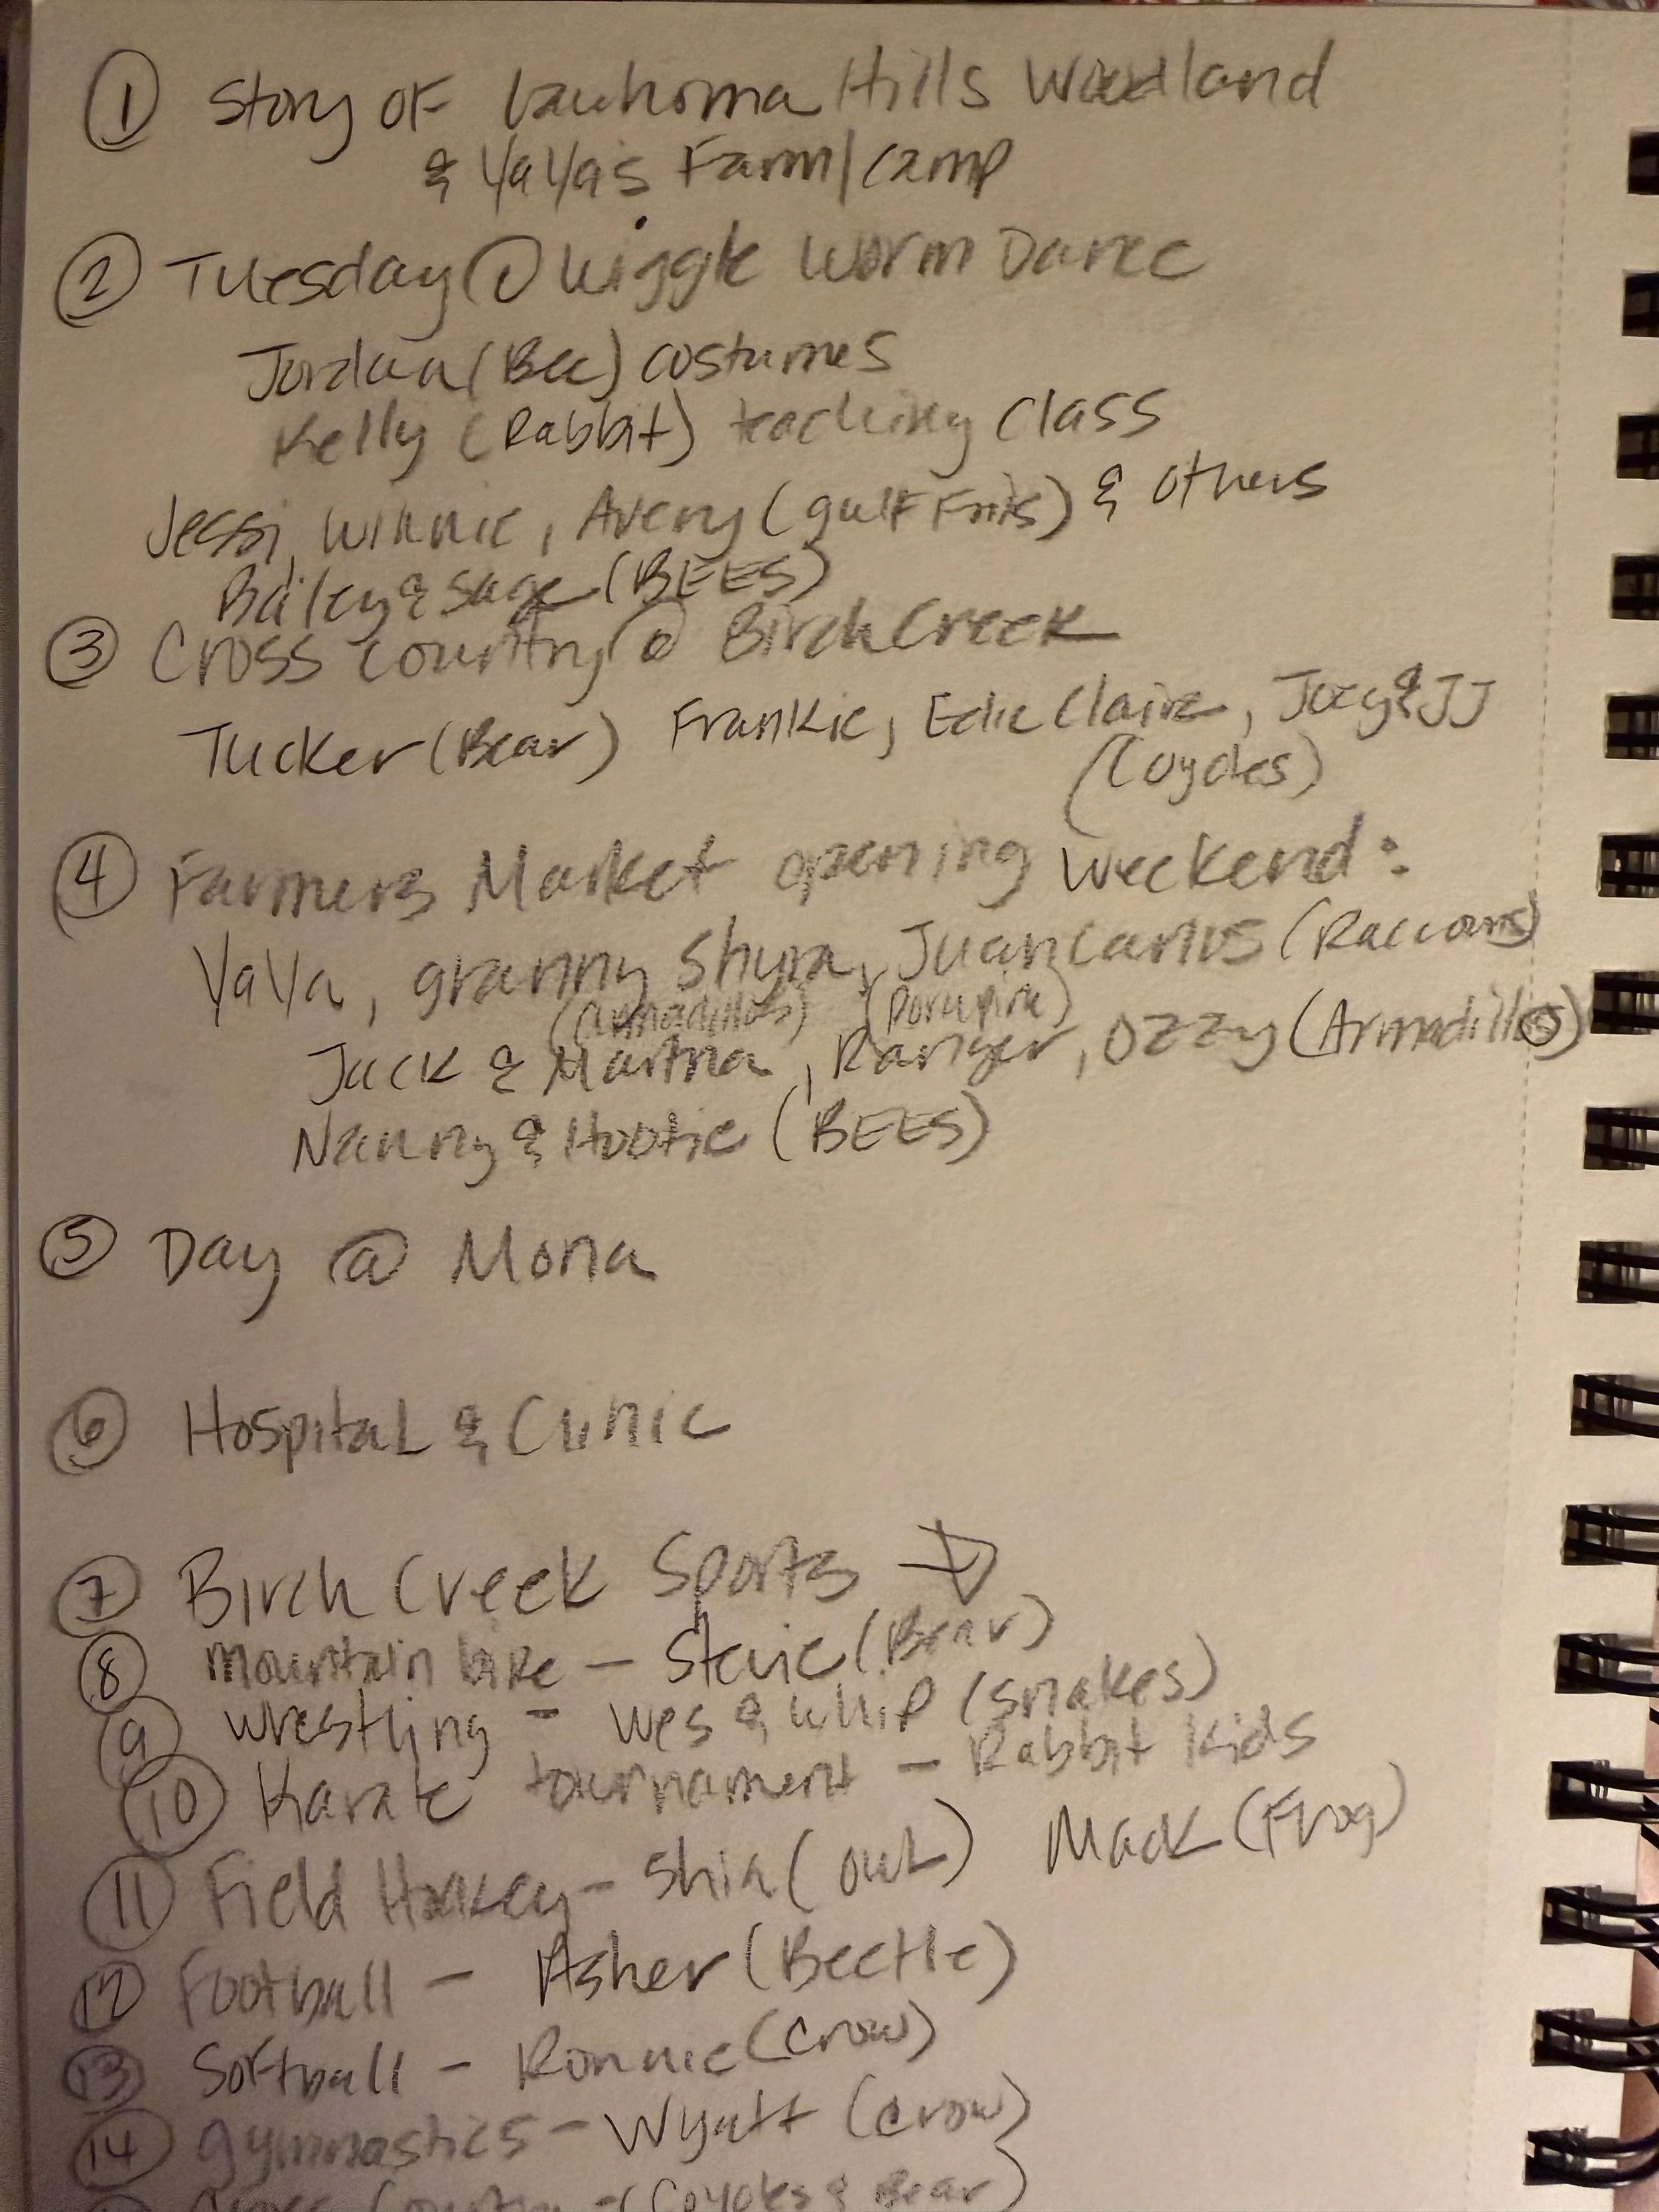 ① Story of Hills Woodland
& YaYa's Farm/Camp
② Tuesday @ Wiggle Worm Dance
Jordan (Bee) costumes
Kelly (Rabbit) teaching class
Jessi, Winnie, Avery (gulf Frits) & others
Bailey & Sage (BEES)
③ Cross country @ Birch Creek
Tucker (Bear) Frankie, Edie Claire, Joey & JJ
(Coyotes)
④ Farmers Market opening weekend:
YaYa, granny Shyra, Juancarlos (Raccoons)
(armadillos) (Porcupine)
Jack & Martha, Ranger, Ozzy (Armadillo)
Nanny & Hootie (BEES)
⑤ Day @ Mona
⑥ Hospital & Clinic
⑦ Birch Creek Sports ↓
⑧ mountain bike - Stevie (Bear)
⑨ wrestling - Wes & Whip (snakes)
⑩ Karate tournament - Rabbit Kids
⑪ Field Hockey - Shia (owl) Mack (Frog)
⑫ Football - Asher (Beetle)
⑬ Softball - Ronnie (Crow)
⑭ gymnastics - Wyatt (crow)
Cross Country - (Coyotes & Bear)